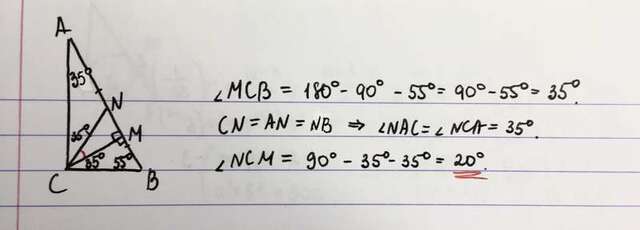 A
35°
N
35°
M
35°
55°
C
B
∠MCB = 180° - 90° - 55° = 90° - 55° = 35°.
CN = AN = NB ⇒ ∠NAC = ∠NCA = 35°.
∠NCM = 90° - 35° - 35° = 20°.